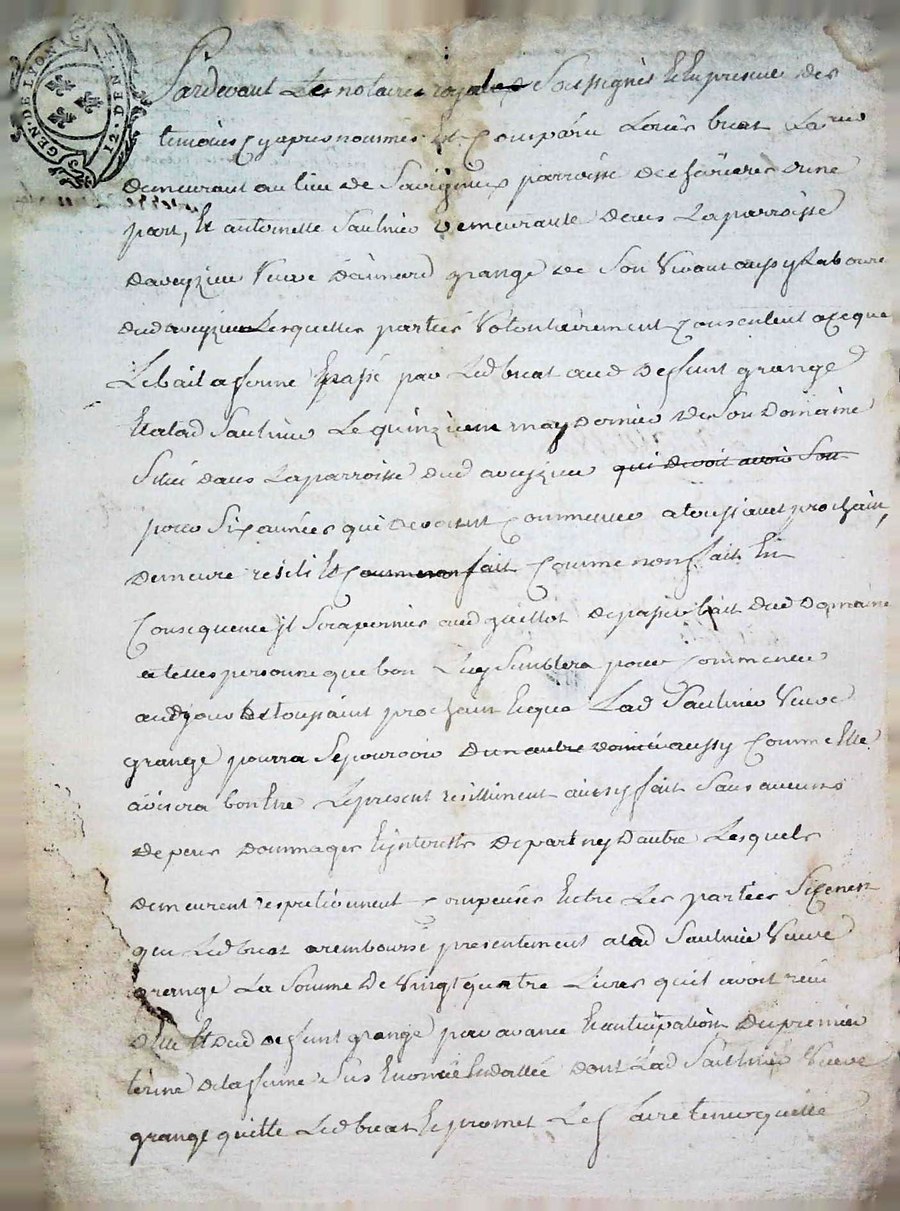 GEN. DE LYON 12. DEN. ET
Pardevant Les notaires royal Soussignés et En presence des
temoins Cy apres nommés Et Comparu Louis buat La
demeurant au lieu de Savigneux parroisse de d'une
part, Et antoinette Saulnier demeurante dans La parroisse
daveyzieu Veuve grange de Son Vivant aussy Laboure
dud aveyzieu Lesquelles parties Volontairement Consentent a ce que
Le bail a ferme passé par Led buat aud deffunt grange
Et a lad Saulnier Le quinzieme may dernier de Son Domaine
Situé dans La parroisse dud aveyzieu qui devoit avoir Son
pour Six années qui devoient Commencer a toussaint prochain,
demeure resilié Et Comme non fait Comme non fait En
Consequence il Sera permis aud guillot de passer bail dud Domaine
a telles personne que bon Luy Semblera pour Commencer
audjour de toussaint prochain Et que Lad Saulnier Veuve
grange pourra Se pourvoir d'un autre aussy Comme Elle
avisera bon Etre Le present resiliment ainsy fait Sans aucuns
depens dommages Et interests de part ny d'autre Lesquels
demeurent respectivement Compensés Entre Les parties
que Led buat a remboursé presentement a lad Saulnier Veuve
grange La Somme De Vingt quatre Livres qu'il avoit reçu
d'elle Et dud deffunt grange par avance Et anticipation du premier
terme de la ferme Sus Enoncé dont Lad Saulnier Veuve
grange quitte Led buat Et promet Le faire tenir quitte